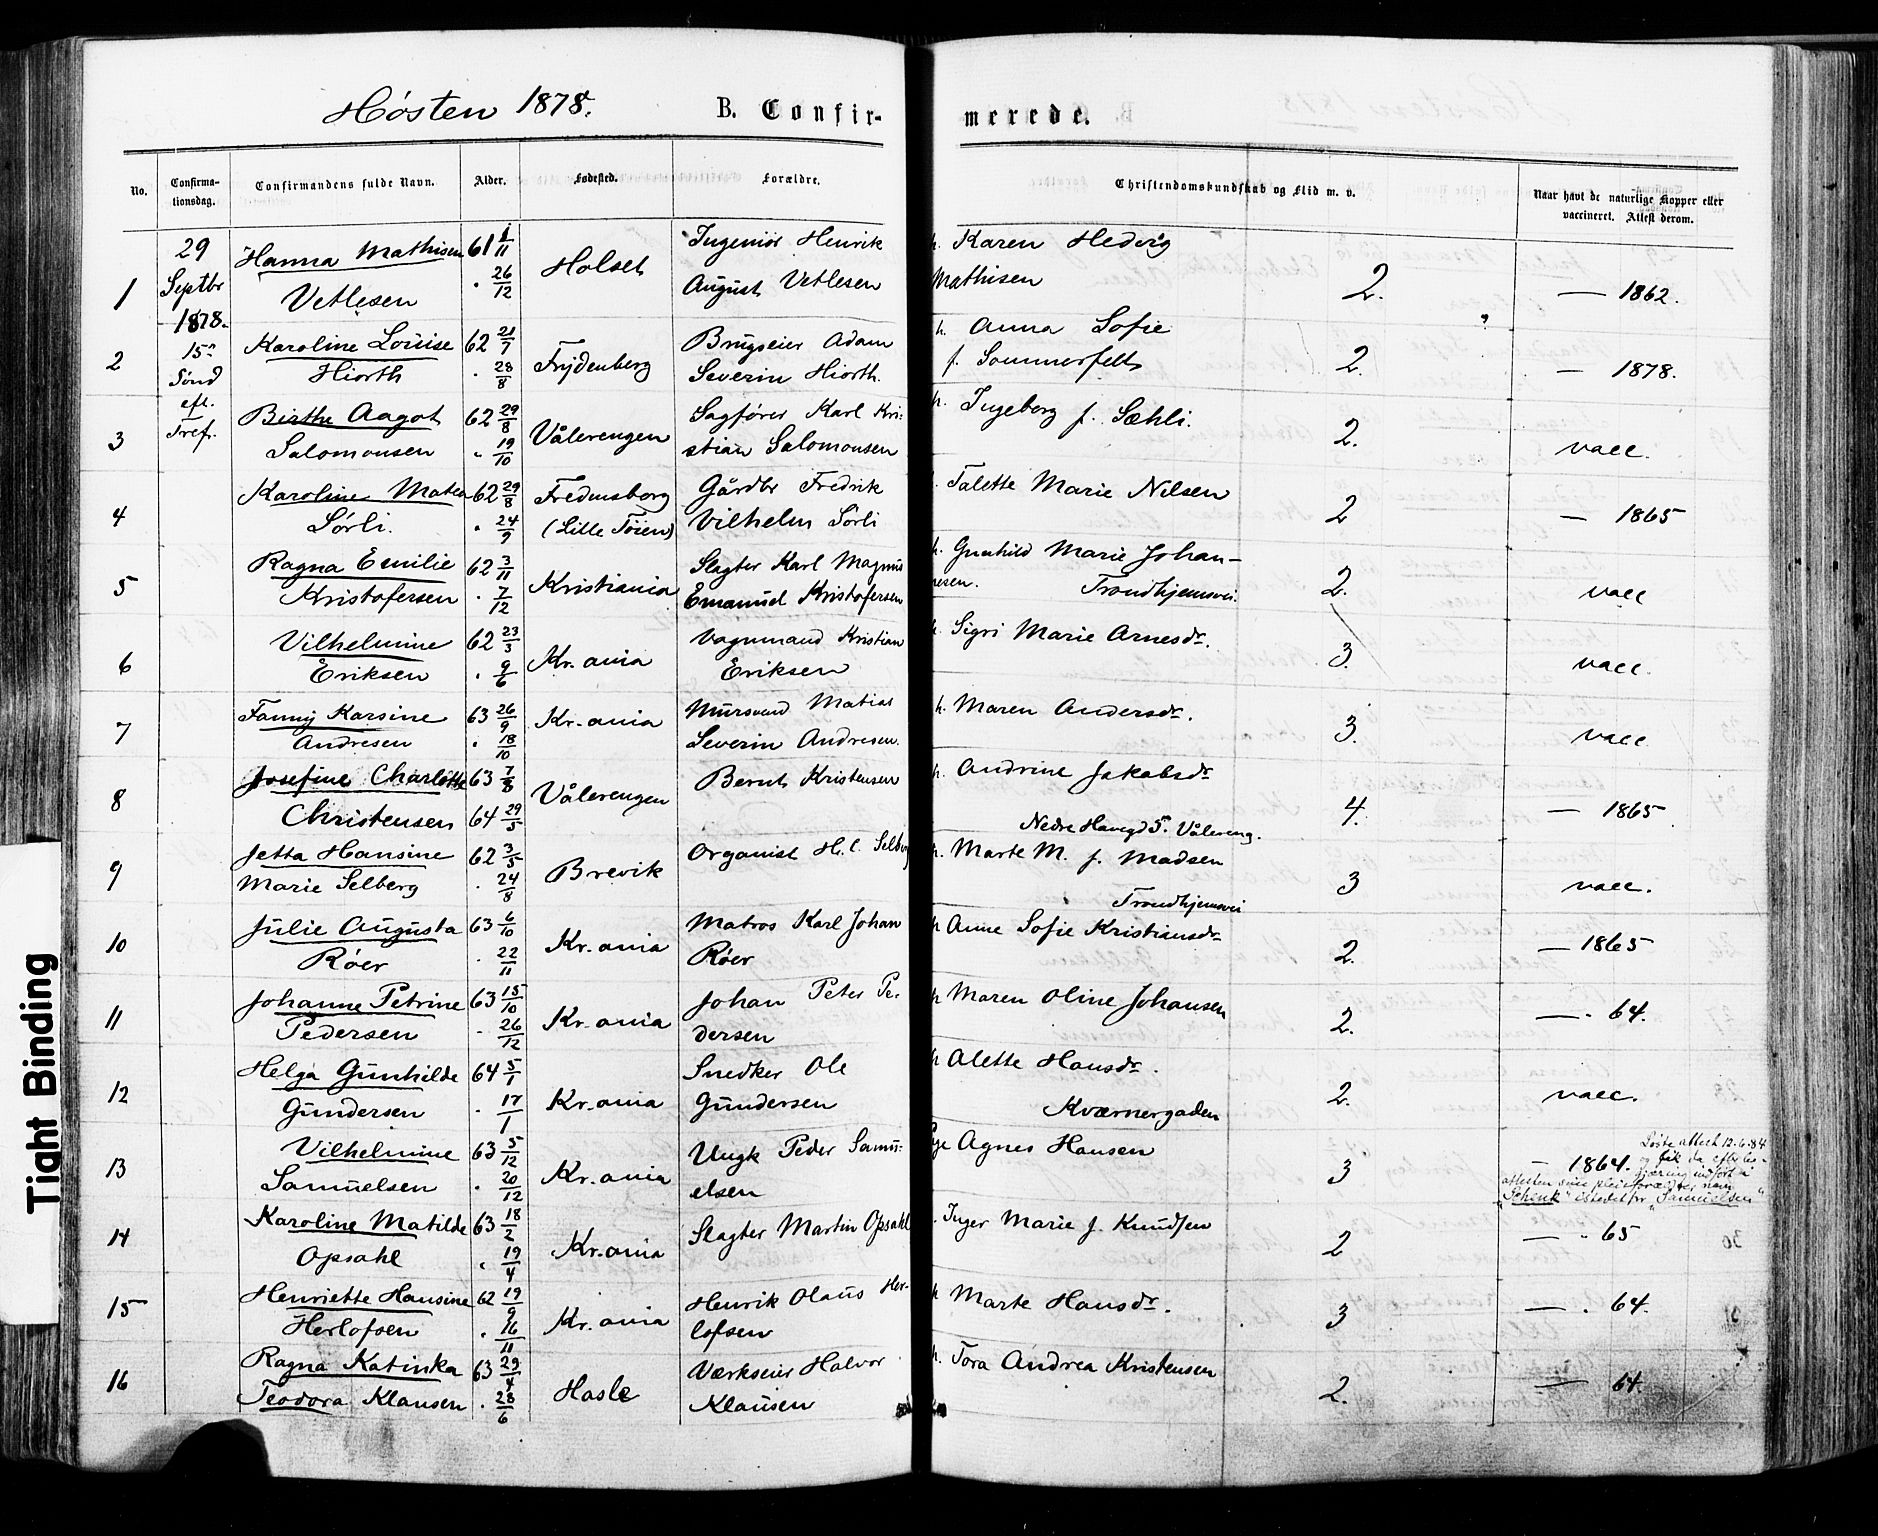 Høsten 1878.
B. Confir-
merede.
No.
Confirma-
tionsdag.
Confirmandens fulde Navn.
Alder.
Fødested.
Forældre.
Christendomskundskab og Flid m. v.
Naar havt de naturlige Kopper eller
vaccineret. Attest derom.
29
Septbr
1878.
15n
Sønd
eft.
Tref.
1 Hanna Mathisen 61 1/11 Holset Ingeniør Henrik h. Karen Hedvig
Vetlesen . 26/12 August Vetlesen Mathisen 2. — 1862.
2 Karoline Louise 62 21/7 Frydenberg Brugseier Adam h. Anna Sofie
Hiorth . 28/8 Severin Hiorth. f. Sommerfelt 2. — 1878.
3 Birthe Aagot 62 29/8 Vålerengen Sagfører Karl Kri- h. Ingeborg f. Sæhli.
Salomonsen " 19/10 stian Salomonsen 2. vacc.
4 Karoline Matea 62 29/8 Fredensborg Gårdbr Fredrik . Talette Marie Nilsen
Sørli. " 24/9 (Lille Tøien) Vilhelm Sørli 2 — 1865
5 Ragna Emilie 62 3/11 Kristiania Slagter Karl Magnus h. Gunhild Marie Johan-
Kristofersen . 7/12 Emanuel Kristofersen nesen. Trondhjemsvei. 2. vacc
6 Vilhelmine 62 23/3 Kr.ania Vognmand Kristian h. Sigri Marie Arnesdr.
Eriksen . 9/6 Eriksen 3. vacc.
7 Fanny Karsine 63 26/9 Kr.ania Mursvend Matias h. Maren Andersdr.
Andresen . 18/10 Severin Andresen. 3. vacc
8 Josefine Charlotte 63 7/8 Vålerengen Bernt Kristensen h. Andrine Jakobsdr
Christensen 64 29/5 Nedre Havegd 5. Vålereng. 4. — 1865.
9 Jetta Hansine 62 3/5 Brevik Organist H. C. Selberg h. Marte M. f. Madsen
Marie Selberg . 24/8 Trondhjemsvei 3 vacc.
10 Julie Augusta 63 6/10 Kr.ania Matros Karl Johan h Anne Sofie Kristiansdr
Røer . 22/11 Røer 2. — 1865
11 Johanne Petrine 63 15/10 Kr.ania Johan Peter Pe- h Maren Oline Johansen
Pedersen . 26/12 dersen 2. — . 64.
12 Helga Gunhilde 64 5/1 Kr.ania Snedker Ole h Alette Hansdr.
Gundersen . 17/1 Gundersen Kværnergaden 2. vacc.
13 Vilhelmine 63 5/12 Kr.ania Ungk Peder Samu- Pge Agnes Hansen
Samuelsen . 20/12 elsen 3 — 1864.
Løste attest 12.6.84
attesten sine pleieforældres navn
"Schenk" istedetfor "Samuelsen"
14 Karoline Matilde 63 18/2 Kr.ania Slagter Martin Opsahl . Inger Marie f. Knudsen
Opsahl " 19/4 2 — . 65
15 Henriette Hansine 62 19/9 Kr.ania Henrik Olaus Her- h Marte Hansdr.
Herlofsen . 16/11 lofsen 3 — . 64.
16 Ragna Katinka 63 29/4 Hasle Værkseier Halvor h. Tora Andrea Kristensen
Teodora Klausen . 28/6 Klausen 2. — 64.
Tight Binding